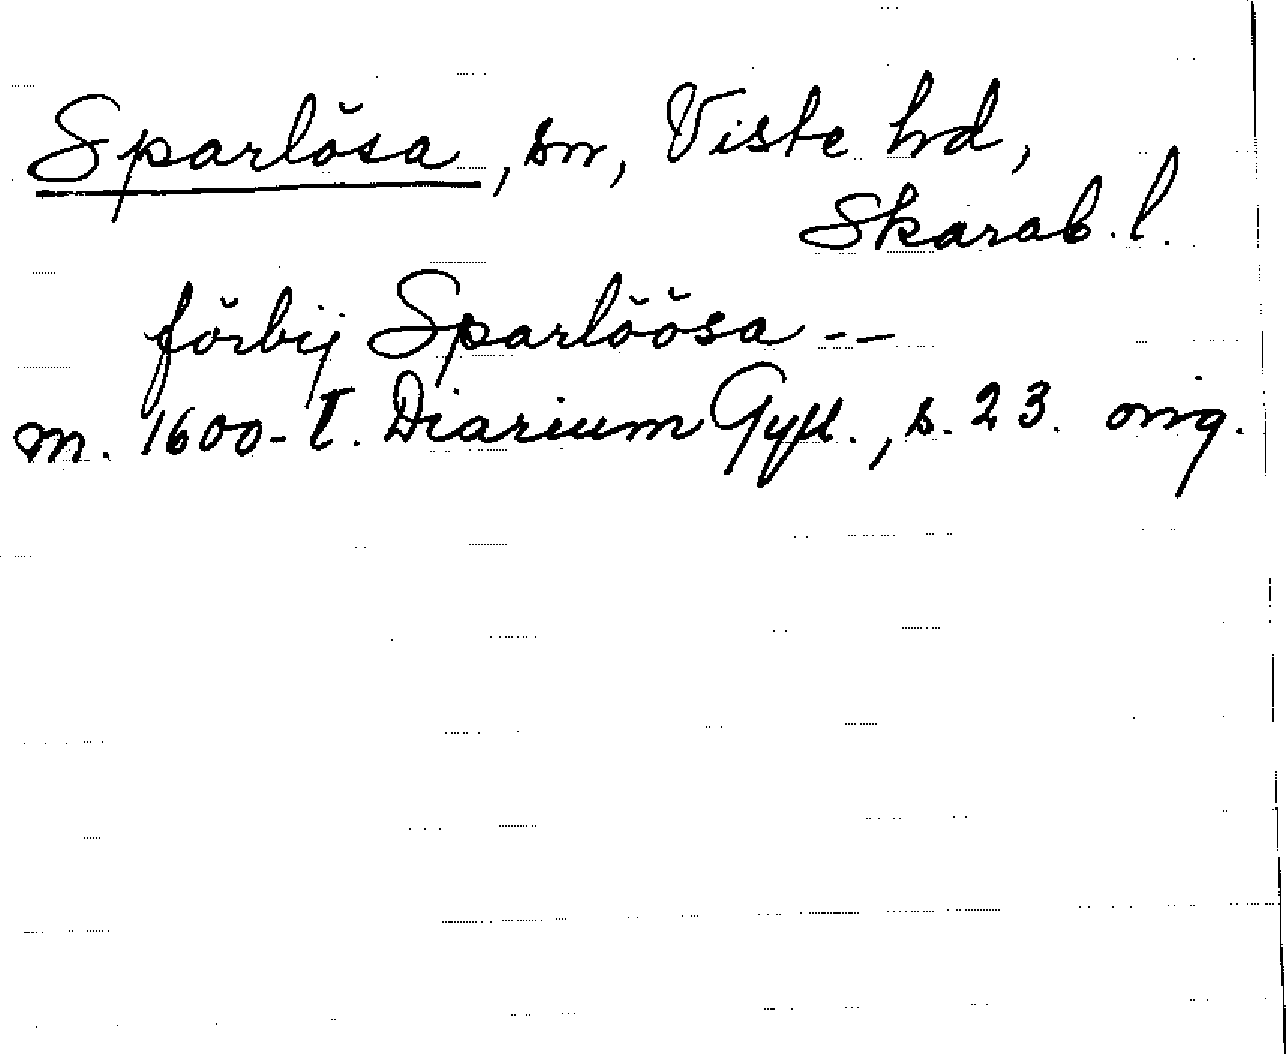 Sparlösa, sn, Viste hd,
Skarab. l.
förbij Sparlöösa --
m. 1600-t. Diarium Gyll., s. 23. orig.